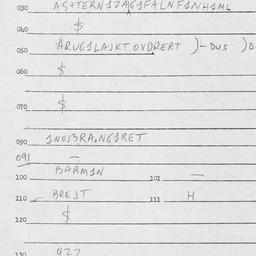 030 AS+TERN1ZAG1FALNF1NH1ML
040 $
050 ARUG1LAJKTOVDRERT )-DUS )D
060 $
070 $
090 1NOJ3RA,NG1RET
091 —
100 BARM1N 101 —
110 BREJT 111 H
$
120
130 QZ7